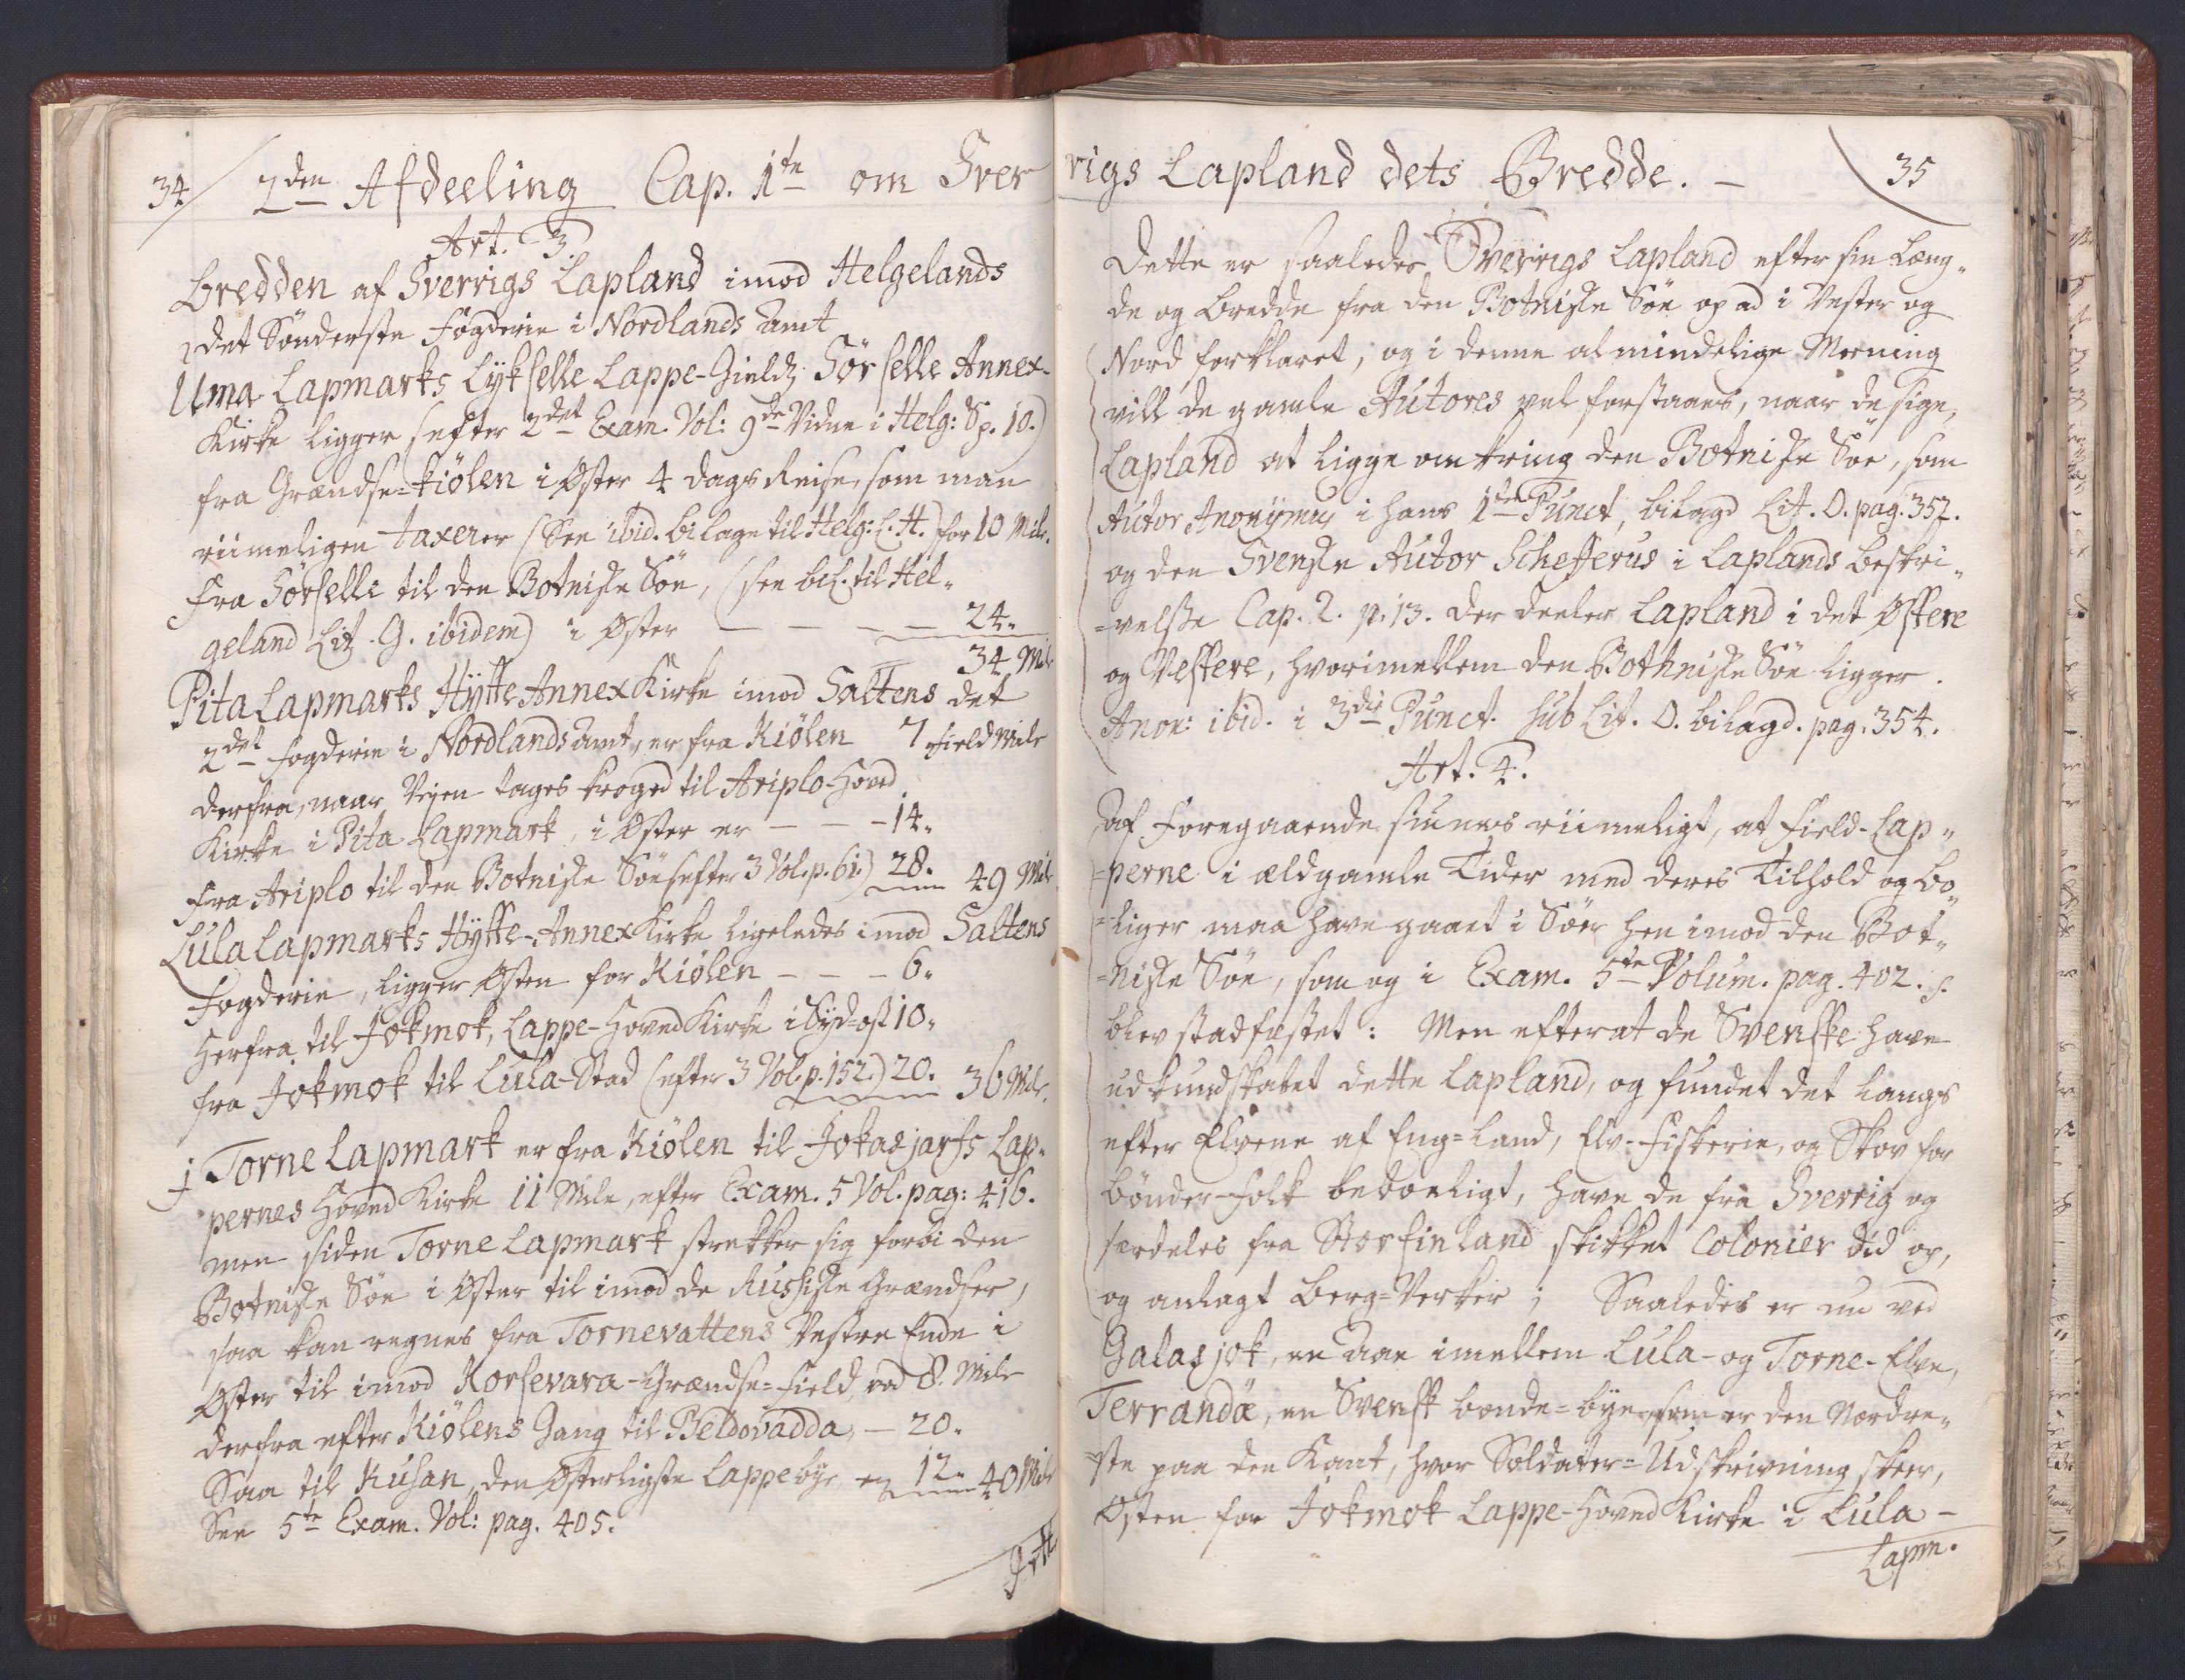 34 2den Afdeeling Cap. 1te om Sver
Art. 3.
Bredden af Sverrigs Lapland imod Helgelands
det Sönderste Fogderie i Nordlands Amt
Uma Lapmarks Lykselle Lappe-Gields Sörselle Annex-
Kirke ligger (efter 2det Exam. Vol: 9de Vidne i Helg: Sp. 10.)
fra Grændse-Kiölen i Øster 4 dags Reise, som man
riimeligen taxerer (See ibid. bilage til Helg: L. H.) for 10 Mile.
Fra Sörselle til den Botniske Söe, (see bil. til Hel-
geland Lit. G. ibidem) i Øster — — — — 24.
34 Mile
Pita Lapmarks Hytte Annex Kirke imod Saltens det
2det Fogderie i Nordlands Amt, er fra Kiölen 7 Field Mile
derfra, naar Veyen tages kroged til Ariplo-Hoved
Kirke i Pita Lapmark, i Øster er — — — 14.
Fra Ariplo til den Botniske Söe (efter 3 Vol. p. 61.) 28. 49 Mile
Lula Lapmarks Hytte-Annex Kirke ligeledes imod Saltens
Fogderie, ligger Østen for Kiölen — — — 6.
Herfra til Jokmok, Lappe-Hoved Kirke i Syd-ost 10.
fra Jokmok til Lula-Stad (efter 3 Vol. p. 152.) 20. 36 Mile.
j Torne Lapmark er fra Kiölen til Jokasjarfs Lap-
pernes Hoved Kirke 11 Mile, efter Exam. 5 Vol. pag: 416.
men siden Torne Lapmark strekker sig forbi den
Botniske Söe i Øster til imod de Russiske Grændser,
saa kan regnes fra Tornevattens Vestre Ende i
Øster til imod Korsevara-Grændse-Field, ved 8. Mile
derfra efter Kiölens Gang til Beldovadda, — 20.
Saa til Kusan, den Østerligste Lappebye, er 12. 40 Mile
See 5te Exam. Vol: pag. 405.
rigs Lapland dets Bredde. — 35
Dette er saaledes Sverrigs Lapland efter sin Læng-
de og Bredde fra den Botniske Söe op ad i Vester og
Nord forklaret, og i denne almindelige Meening
vill de gamle Autores vel forstaaes, naar de sige,
Lapland at ligge omkring den Botniske Söe, som
Autor Anonymus i hans 1te Punct, bilagd Lit. O. pag. 352.
og den Svenske Autor Schefferus i Laplands Beskri-
=velse Cap. 2. p. 13. der deeler Lapland i det Østere
og Vestere, hvorimellem den Bothniske Söe ligger.
Anon: ibid. i 3die Punct. sub Lit. O. bilagd. pag. 354.
Art. 4.
Af Foregaaende siunes riimeligt, at Field-Lap-
=perne i ældgamle Tider med deres Tilhold og Bo-
=liger maa have gaaet i Söer hen imod den Bot-
=niske Söe, som og i Exam. 5te Volum. pag. 402. s.
blev stadfæstet: Men efterat de Svenske have
udkundskabet dette Lapland, og fundet det langs
efter Elvene af Eng=Land, Elv-Fiskerie, og Skov for
Bönder-Folk beboeligt, have de fra Sverrig og
særdeles fra Storfinland skikket Colonier did op,
og anlagt Berg=Verker; Saaledes er nu ved
Galasjok, en Aae imellem Lula- og Torne-Elve,
Terrandæ, en Svensk bonde=bye, som er den Nordre-
ste paa den Kant, hvor Soldater=Udskrivning skeer,
Østen for Jokmok Lappe-Hoved Kirke i Lula-
Lapm.